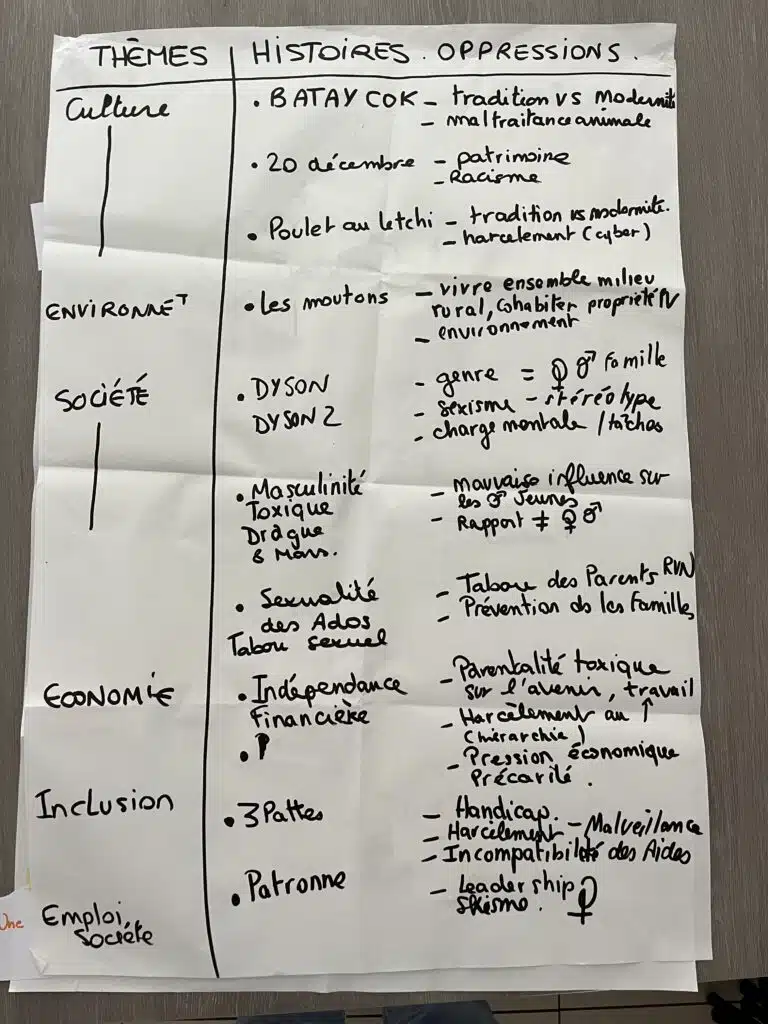 THÈMES HISTOIRES. OPPRESSIONS.
Culture • BATAY COK – tradition vs Modernité
– maltraitance animale
• 20 décembre – patrimoine
– Racisme
• Poulet au letchi – tradition vs modernité.
– harcèlement (cyber)
ENVIRONNEᵀ • Les moutons – vivre ensemble milieu
rural, Cohabiter propriété
– environnement
SOCIÉTÉ • DYSON – genre = ♀ ♂ Famille
DYSON 2 – sexisme – stéréotype
– charge mentale / tâches
• Masculinité – mauvaise influence sur
Toxique les ♂ Jeunes
Drague – Rapport ≠ ♀ ♂
8 Mars.
• Sexualité – Tabou des Parents RUN
des Ados – Prévention ds les Familles
Tabou sexuel
ECONOMIE • Indépendance – Parentalité toxique
Financière sur l'avenir, travail
• P – Harcèlement au ↑
(hiérarchie)
– Pression économique
Précarité.
Inclusion • 3 Pattes – Handicap.
– Harcèlement – Malveillance
– Incompatibilité des Aides
• Patronne – Leadership ♀
Emploi, sexisme.
Société
une